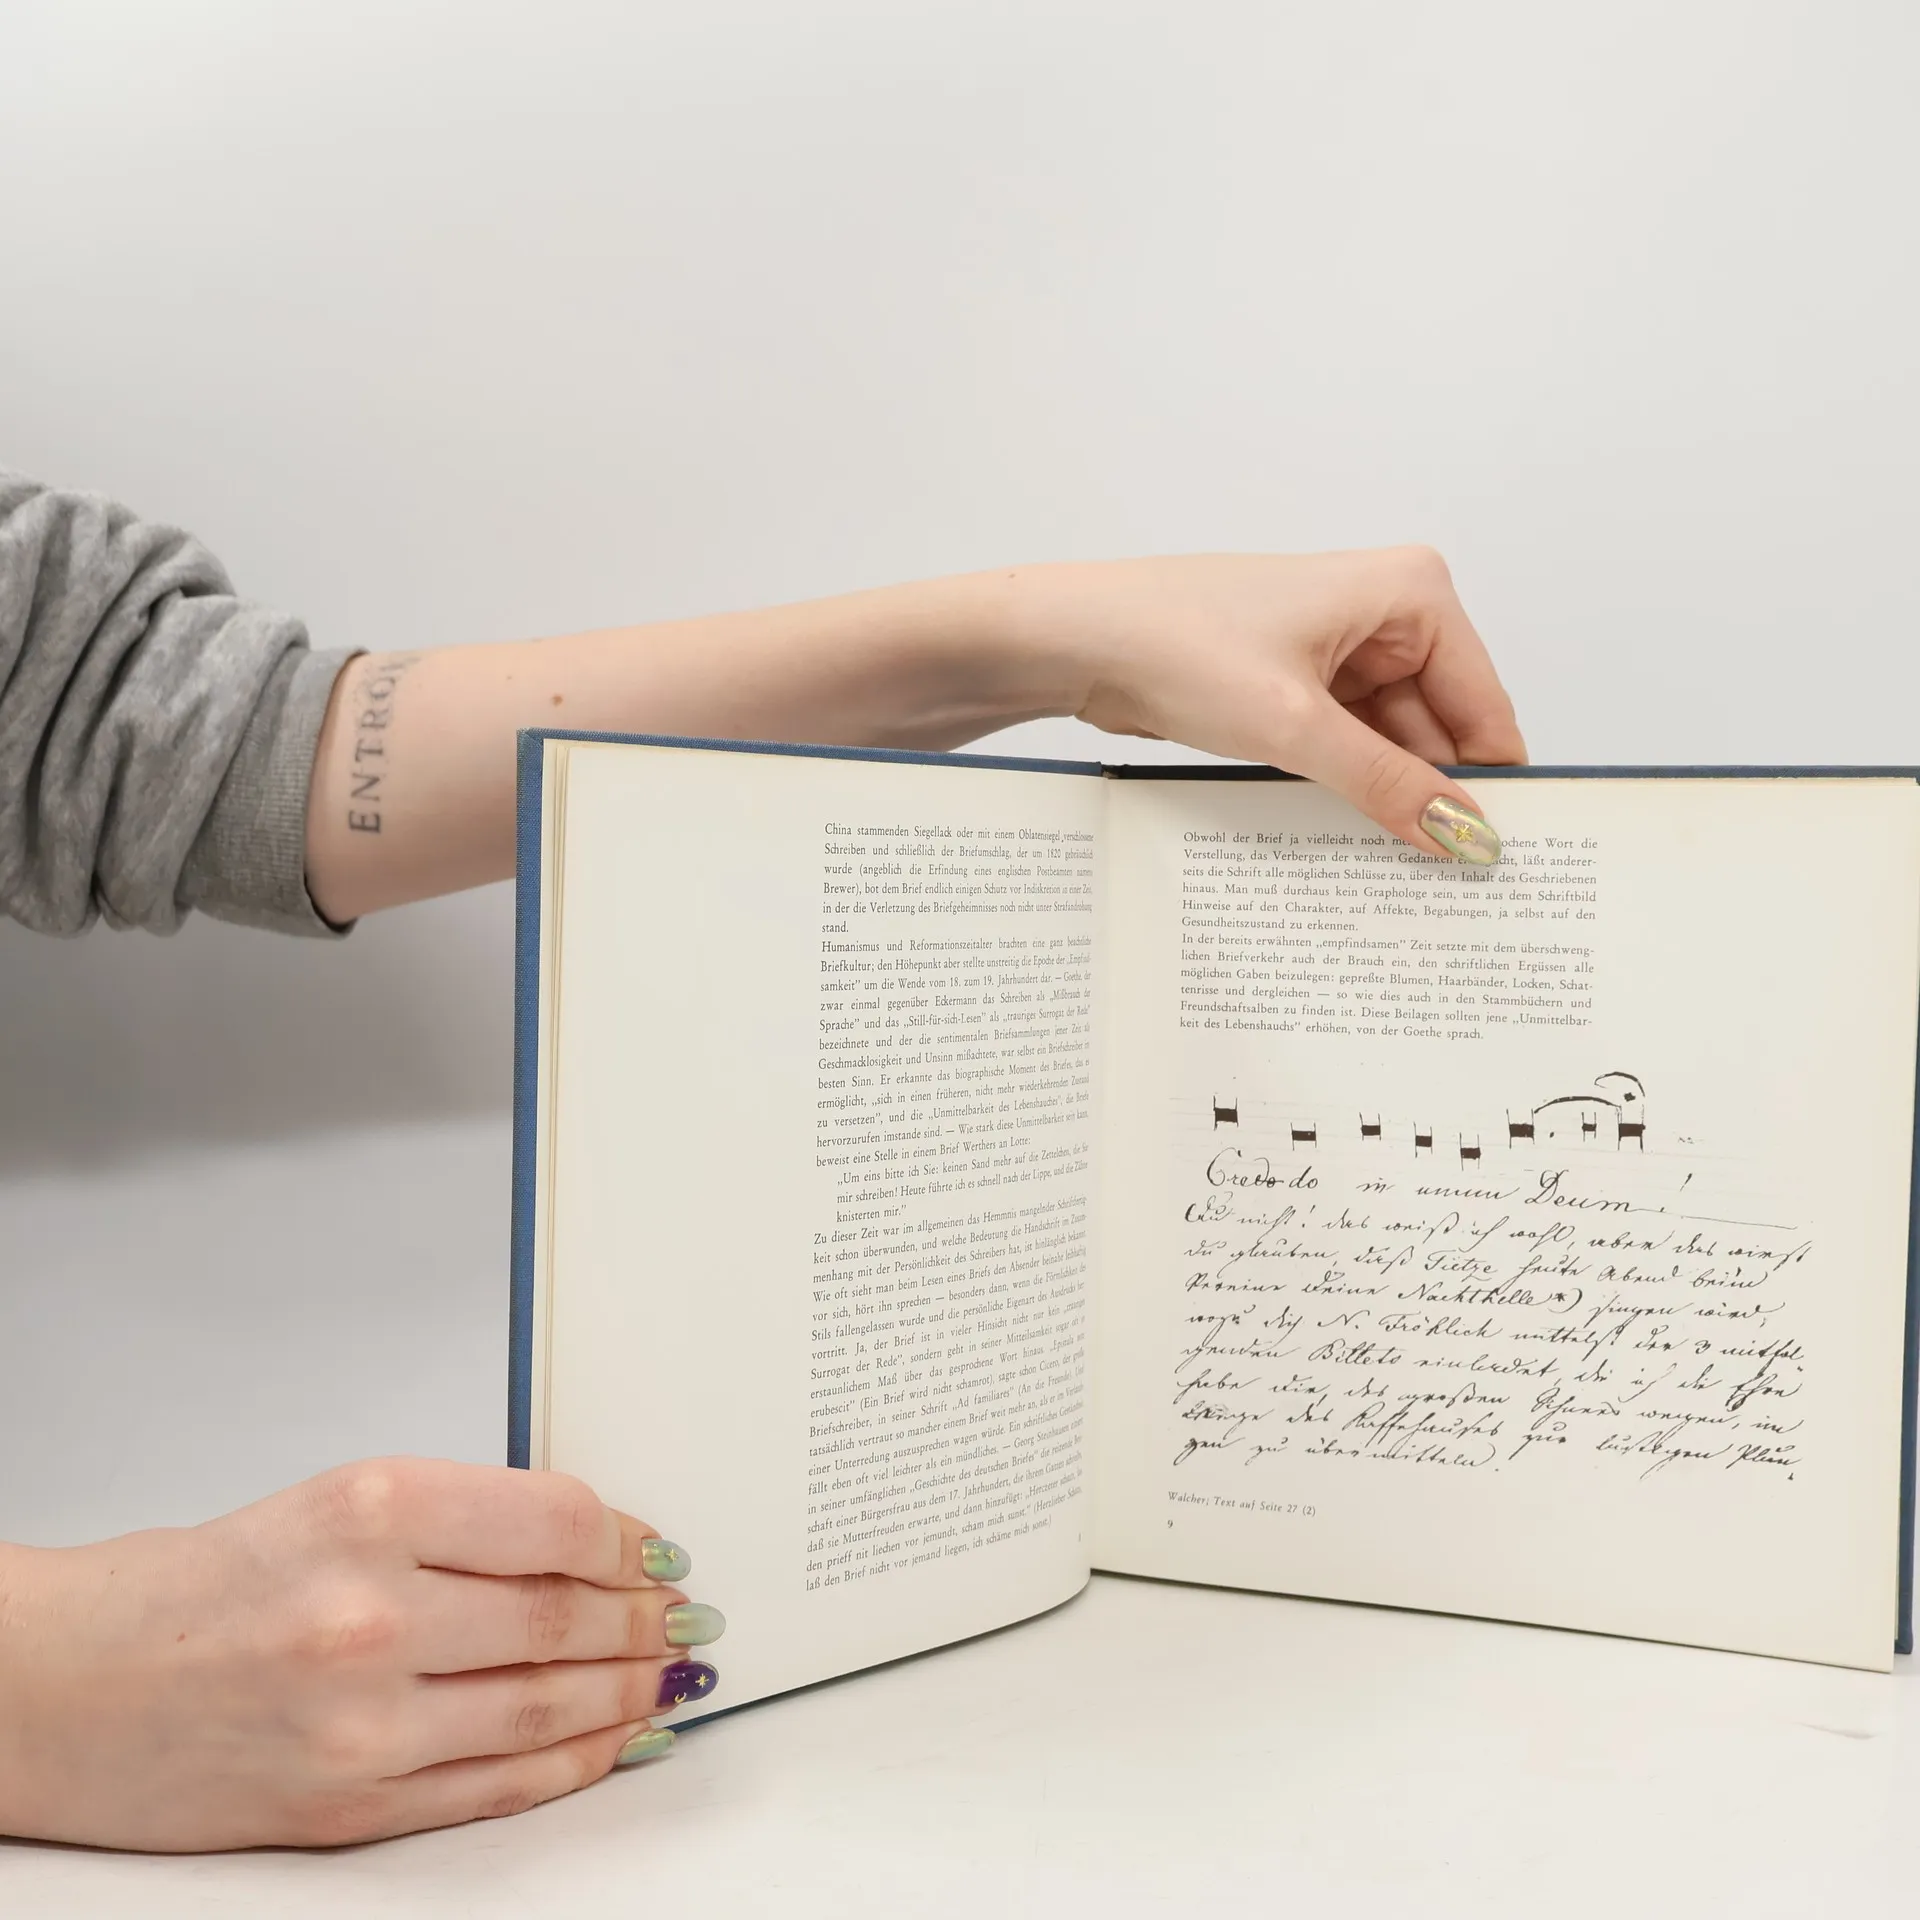 ENTRO
China stammenden Siegellack oder mit einem Oblatensiegel verschlossene
Schreiben und schließlich der Briefumschlag, der um 1820 gebräuchlich
wurde (angeblich die Erfindung eines englischen Postbeamten namens
Brewer), bot dem Brief endlich einigen Schutz vor Indiskretion in einer Zeit,
in der die Verletzung des Briefgeheimnisses noch nicht unter Strafandrohung
stand.
Humanismus und Reformationszeitalter brachten eine ganz beachtliche
Briefkultur; den Höhepunkt aber stellte unstreitig die Epoche der „Empfind-
samkeit" um die Wende vom 18. zum 19. Jahrhundert dar. — Goethe, der
zwar einmal gegenüber Eckermann das Schreiben als „Mißbrauch der
Sprache" und das „Still-für-sich-Lesen" als „trauriges Surrogat der Rede"
bezeichnete und der die sentimentalen Briefsammlungen jener Zeit als
Geschmacklosigkeit und Unsinn mißachtete, war selbst ein Briefschreiber im
besten Sinn. Er erkannte das biographische Moment des Briefes, das es
ermöglicht, „sich in einen früheren, nicht mehr wiederkehrenden Zustand
zu versetzen", und die „Unmittelbarkeit des Lebenshauches", die Briefe
hervorzurufen imstande sind. — Wie stark diese Unmittelbarkeit sein kann,
beweist eine Stelle in einem Brief Werthers an Lotte:
„Um eins bitte ich Sie: keinen Sand mehr auf die Zettelchen, die Sie
mir schreiben! Heute führte ich es schnell nach der Lippe, und die Zähne
knisterten mir."
Zu dieser Zeit war im allgemeinen das Hemmnis mangelnder Schreibfertig-
keit schon überwunden, und welche Bedeutung die Handschrift im Zusam-
menhang mit der Persönlichkeit des Schreibers hat, ist hinlänglich bekannt.
Wie oft sieht man beim Lesen eines Briefs den Absender beinahe leibhaftig
vor sich, hört ihn sprechen — besonders dann, wenn die Förmlichkeit des
Stils fallengelassen wurde und die persönliche Eigenart des Ausdrucks her-
vortritt. Ja, der Brief ist in vieler Hinsicht nicht nur kein „trauriges
Surrogat der Rede", sondern geht in seiner Mitteilsamkeit sogar oft in
erstaunlichem Maß über das gesprochene Wort hinaus. „Epistula non
erubescit" (Ein Brief wird nicht schamrot), sagte schon Cicero, der große
Briefschreiber, in seiner Schrift „Ad familiares" (An die Freunde). Und
tatsächlich vertraut so mancher einem Brief weit mehr an, als er im Verlauf
einer Unterredung auszusprechen wagen würde. Ein schriftliches Geständnis
fällt eben oft viel leichter als ein mündliches. — Georg Steinhausen zitiert
in seiner umfänglichen „Geschichte des deutschen Briefes" die reizende Bot-
schaft einer Bürgersfrau aus dem 17. Jahrhundert, die ihrem Gatten schreibt,
daß sie Mutterfreuden erwarte, und dann hinzufügt: „Hertzeter schatz, las
den prieff nit liechen vor jemundt, scham mich sunst." (Herzlieber Schatz,
laß den Brief nicht vor jemand liegen, ich schäme mich sonst.)
8
Obwohl der Brief ja vielleicht noch ochene Wort die
Verstellung, das Verbergen der wahren Gedanken läßt anderer-
seits die Schrift alle möglichen Schlüsse zu, über den Inhalt des Geschriebenen
hinaus. Man muß durchaus kein Graphologe sein, um aus dem Schriftbild
Hinweise auf den Charakter, auf Affekte, Begabungen, ja selbst auf den
Gesundheitszustand zu erkennen.
In der bereits erwähnten „empfindsamen" Zeit setzte mit dem überschweng-
lichen Briefverkehr auch der Brauch ein, den schriftlichen Ergüssen alle
möglichen Gaben beizulegen: gepreßte Blumen, Haarbänder, Locken, Schat-
tenrisse und dergleichen — so wie dies auch in den Stammbüchern und
Freundschaftsalben zu finden ist. Diese Beilagen sollten jene „Unmittelbar-
keit des Lebenshauchs" erhöhen, von der Goethe sprach.
Credo do in unum Deum. !
Du nicht! das weiß ich wohl, aber das wirst
du glauben, daß Tietze heute Abend beim
Vereine Deine Nachthelle *) singen wird,
wozu dich N. Fröhlich mittelst der 3 mitfol-
genden Billets einladet, die ich die Ehre
habe dir, des großen Schnees wegen, im
des Kaffehauses zur lustigen Plun-
zen zu übermitteln.
Walcher; Text auf Seite 27 (2)
9